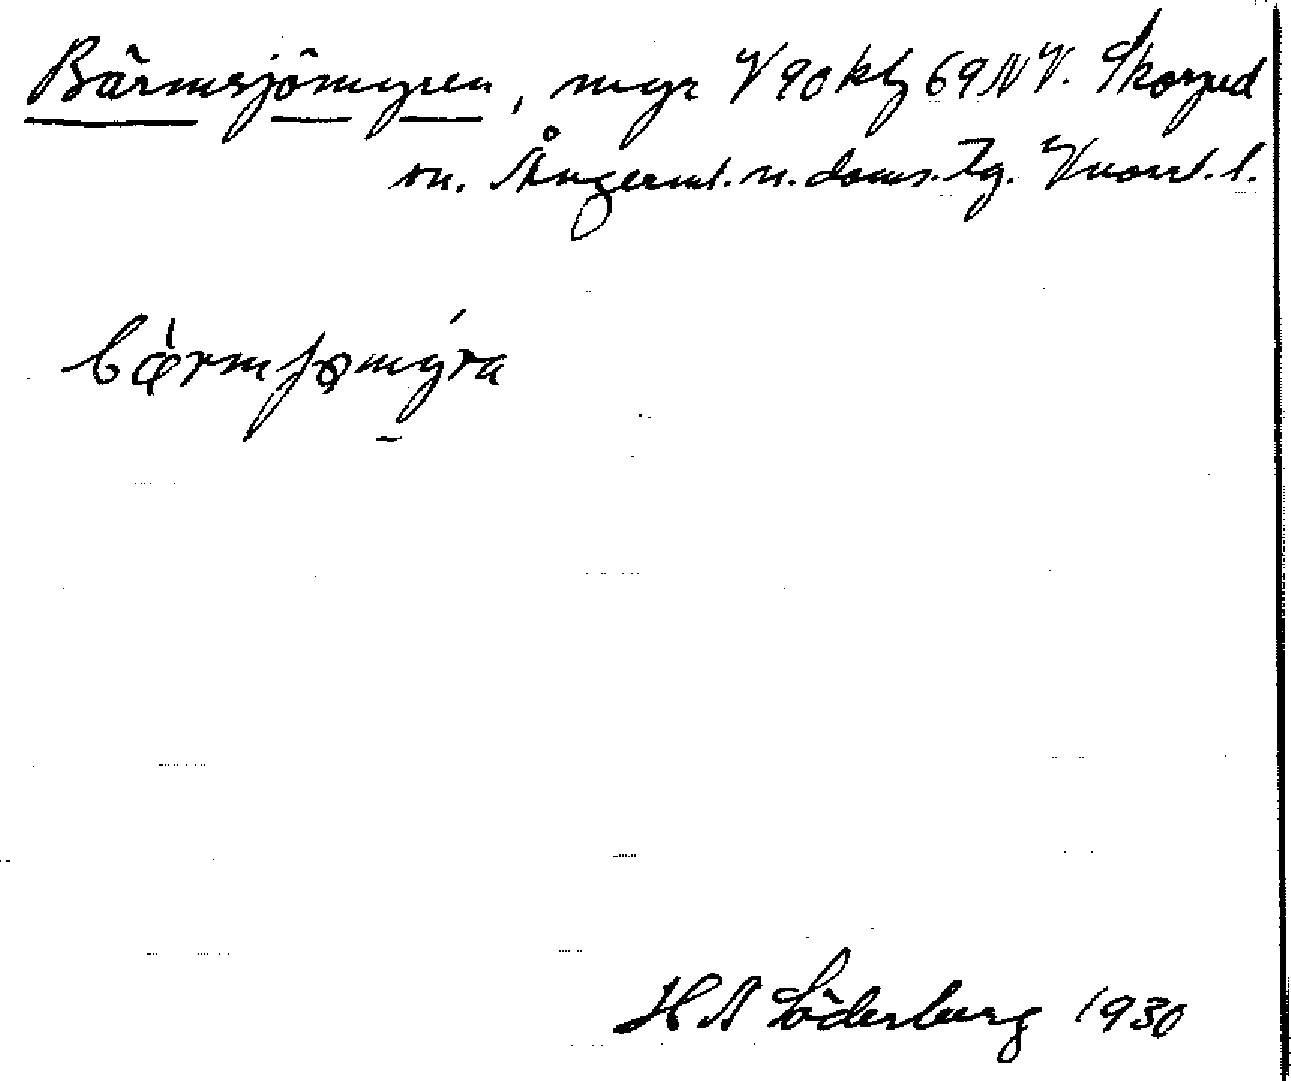 Bärmsjömyren, myr V 90 kbl 69 NV. Skorped
sn. Ångerml. n. doms. lg. Vnorrl. l.
bärmsjömýra
H A Söderberg 1930